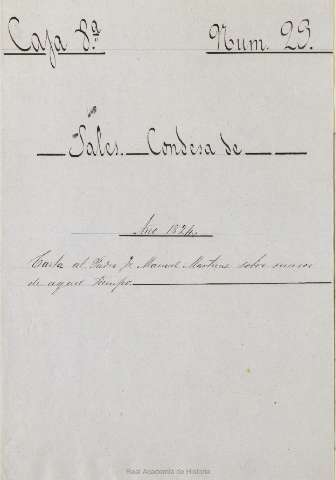 Caja 8.ª Num. 23.
Sales. Condesa de
Año 1824.
Carta al Padre Fr. Manuel Martinez sobre sucesos
de aquel tiempo.
Real Academia de Historia